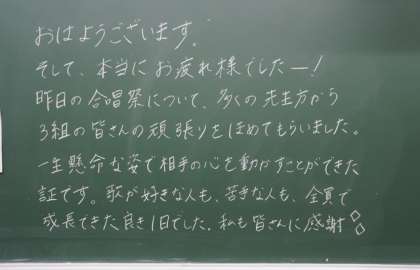 おはようございます。
そして、本当にお疲れ様でしたー!
昨日の合唱祭について、多くの先生方から
3組の皆さんの頑張りをほめてもらいました。
一生懸命な姿で相手の心を動かすことができた
証です。歌が好きな人も、苦手な人も、全員で
成長できた良き1日でした。私も皆さんに感謝